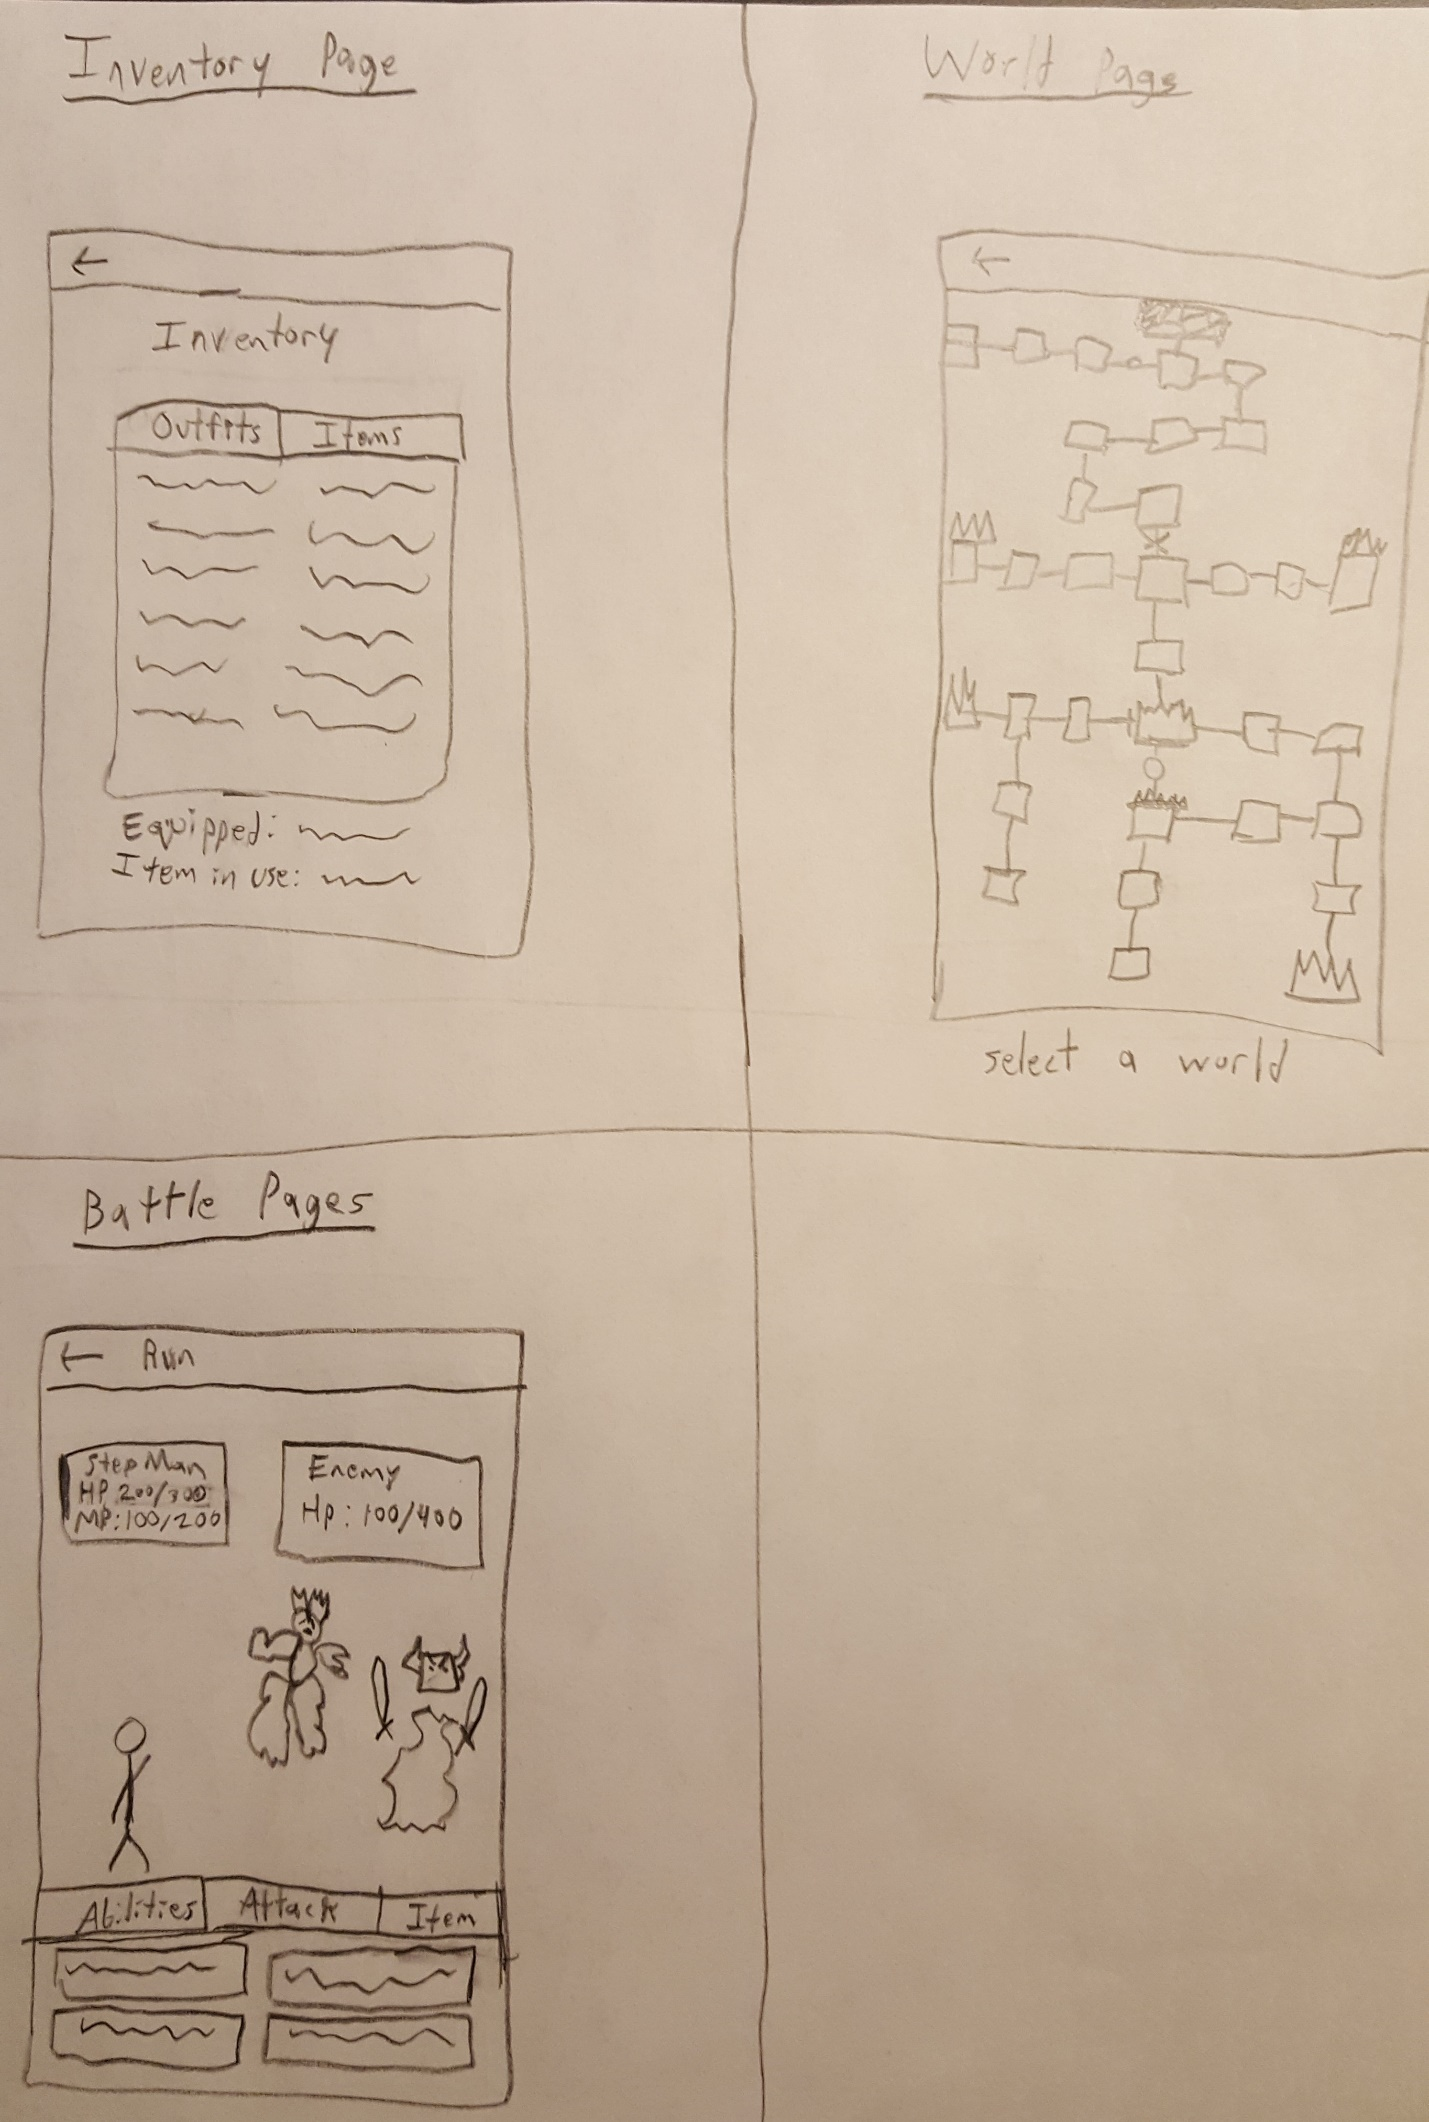 Inventory Page
←
Inventory
Outfits Items
Equipped:
Item in use:
World Page
←
select a world
Battle Pages
← Run
Step Man
HP 200/300
MP: 100/200
Enemy
Hp: 100/400
Abilities Attack Item